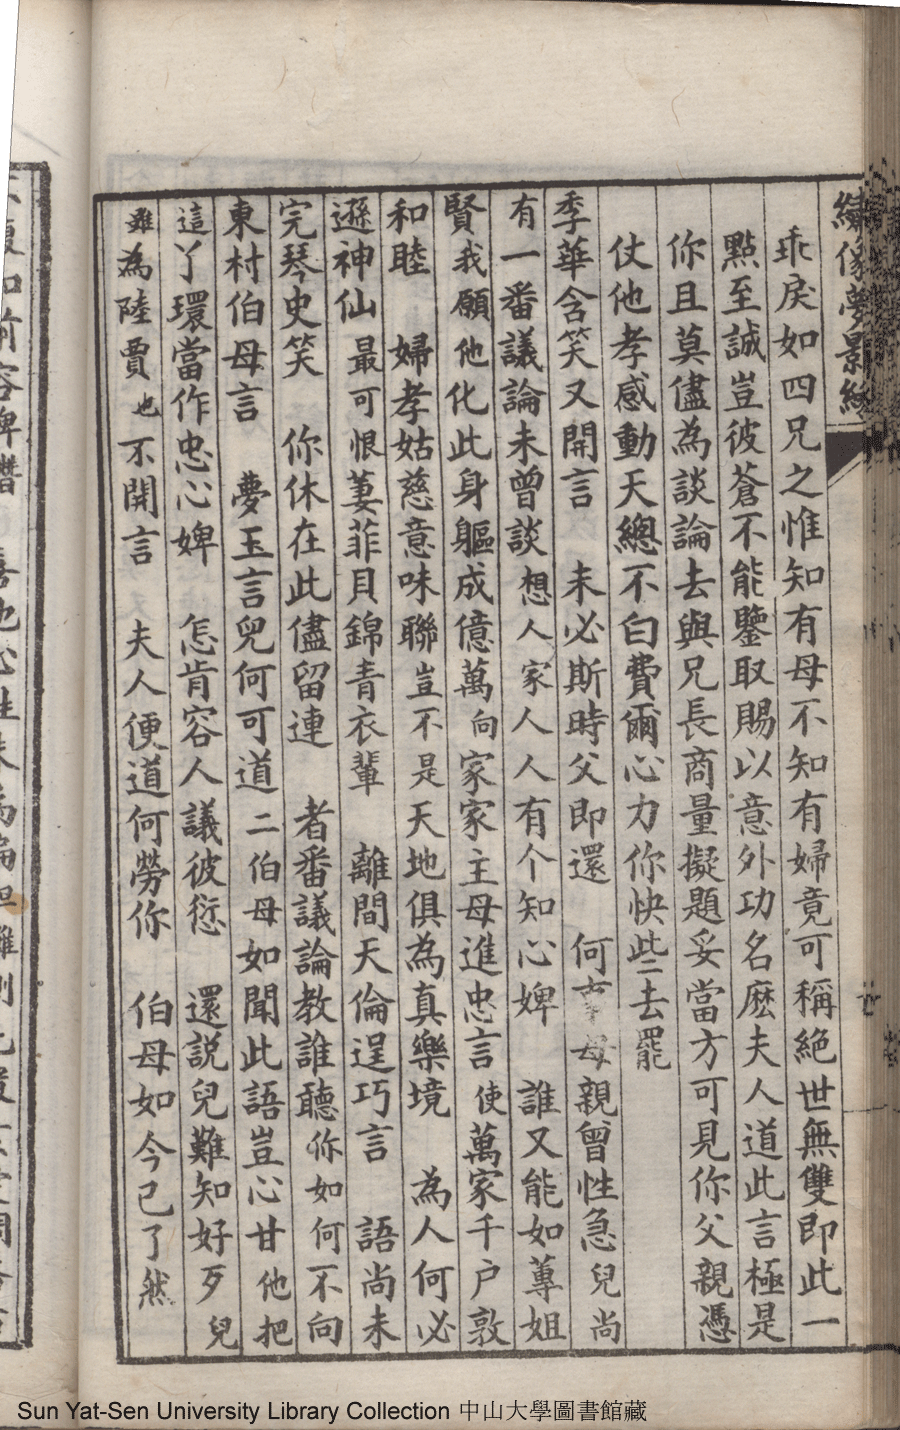 繡像夢影緣
乖戾如四兄之惟知有母不知有婦竟可稱絕世無雙即此一
點至誠豈彼蒼不能鑒取賜以意外功名麽夫人道此言極是
你且莫儘為談論去與兄長商量擬題妥當方可見你父親憑
仗他孝感動天總不白費爾心力你快些去罷
季華含笑又開言 未必斯時父即還 何事母親曾性急 兒尚
有一番議論未曾談 想人家人人有个知心婢 誰又能如蓴姐
賢 我願他化此身軀成億萬 向家家主母進忠言 使萬家千户敦
和睦 婦孝姑慈意味聯 豈不是天地俱為真樂境 為人何必
遜神仙 最可恨萋菲貝錦青衣輩 離間天倫逞巧言 語尚未
完琴史笑 你休在此儘留連 者番議論教誰聽 你如何不向
東村伯母言 夢玉言兒何可道 二伯母如聞此語豈心甘 他把
這丫環當作忠心婢 怎肯容人議彼愆 還説兒難知好歹 兒
雖為陸賈也不開言 夫人便道何勞你 伯母如今已了然
Sun Yat-Sen University Library Collection 中山大學圖書館藏